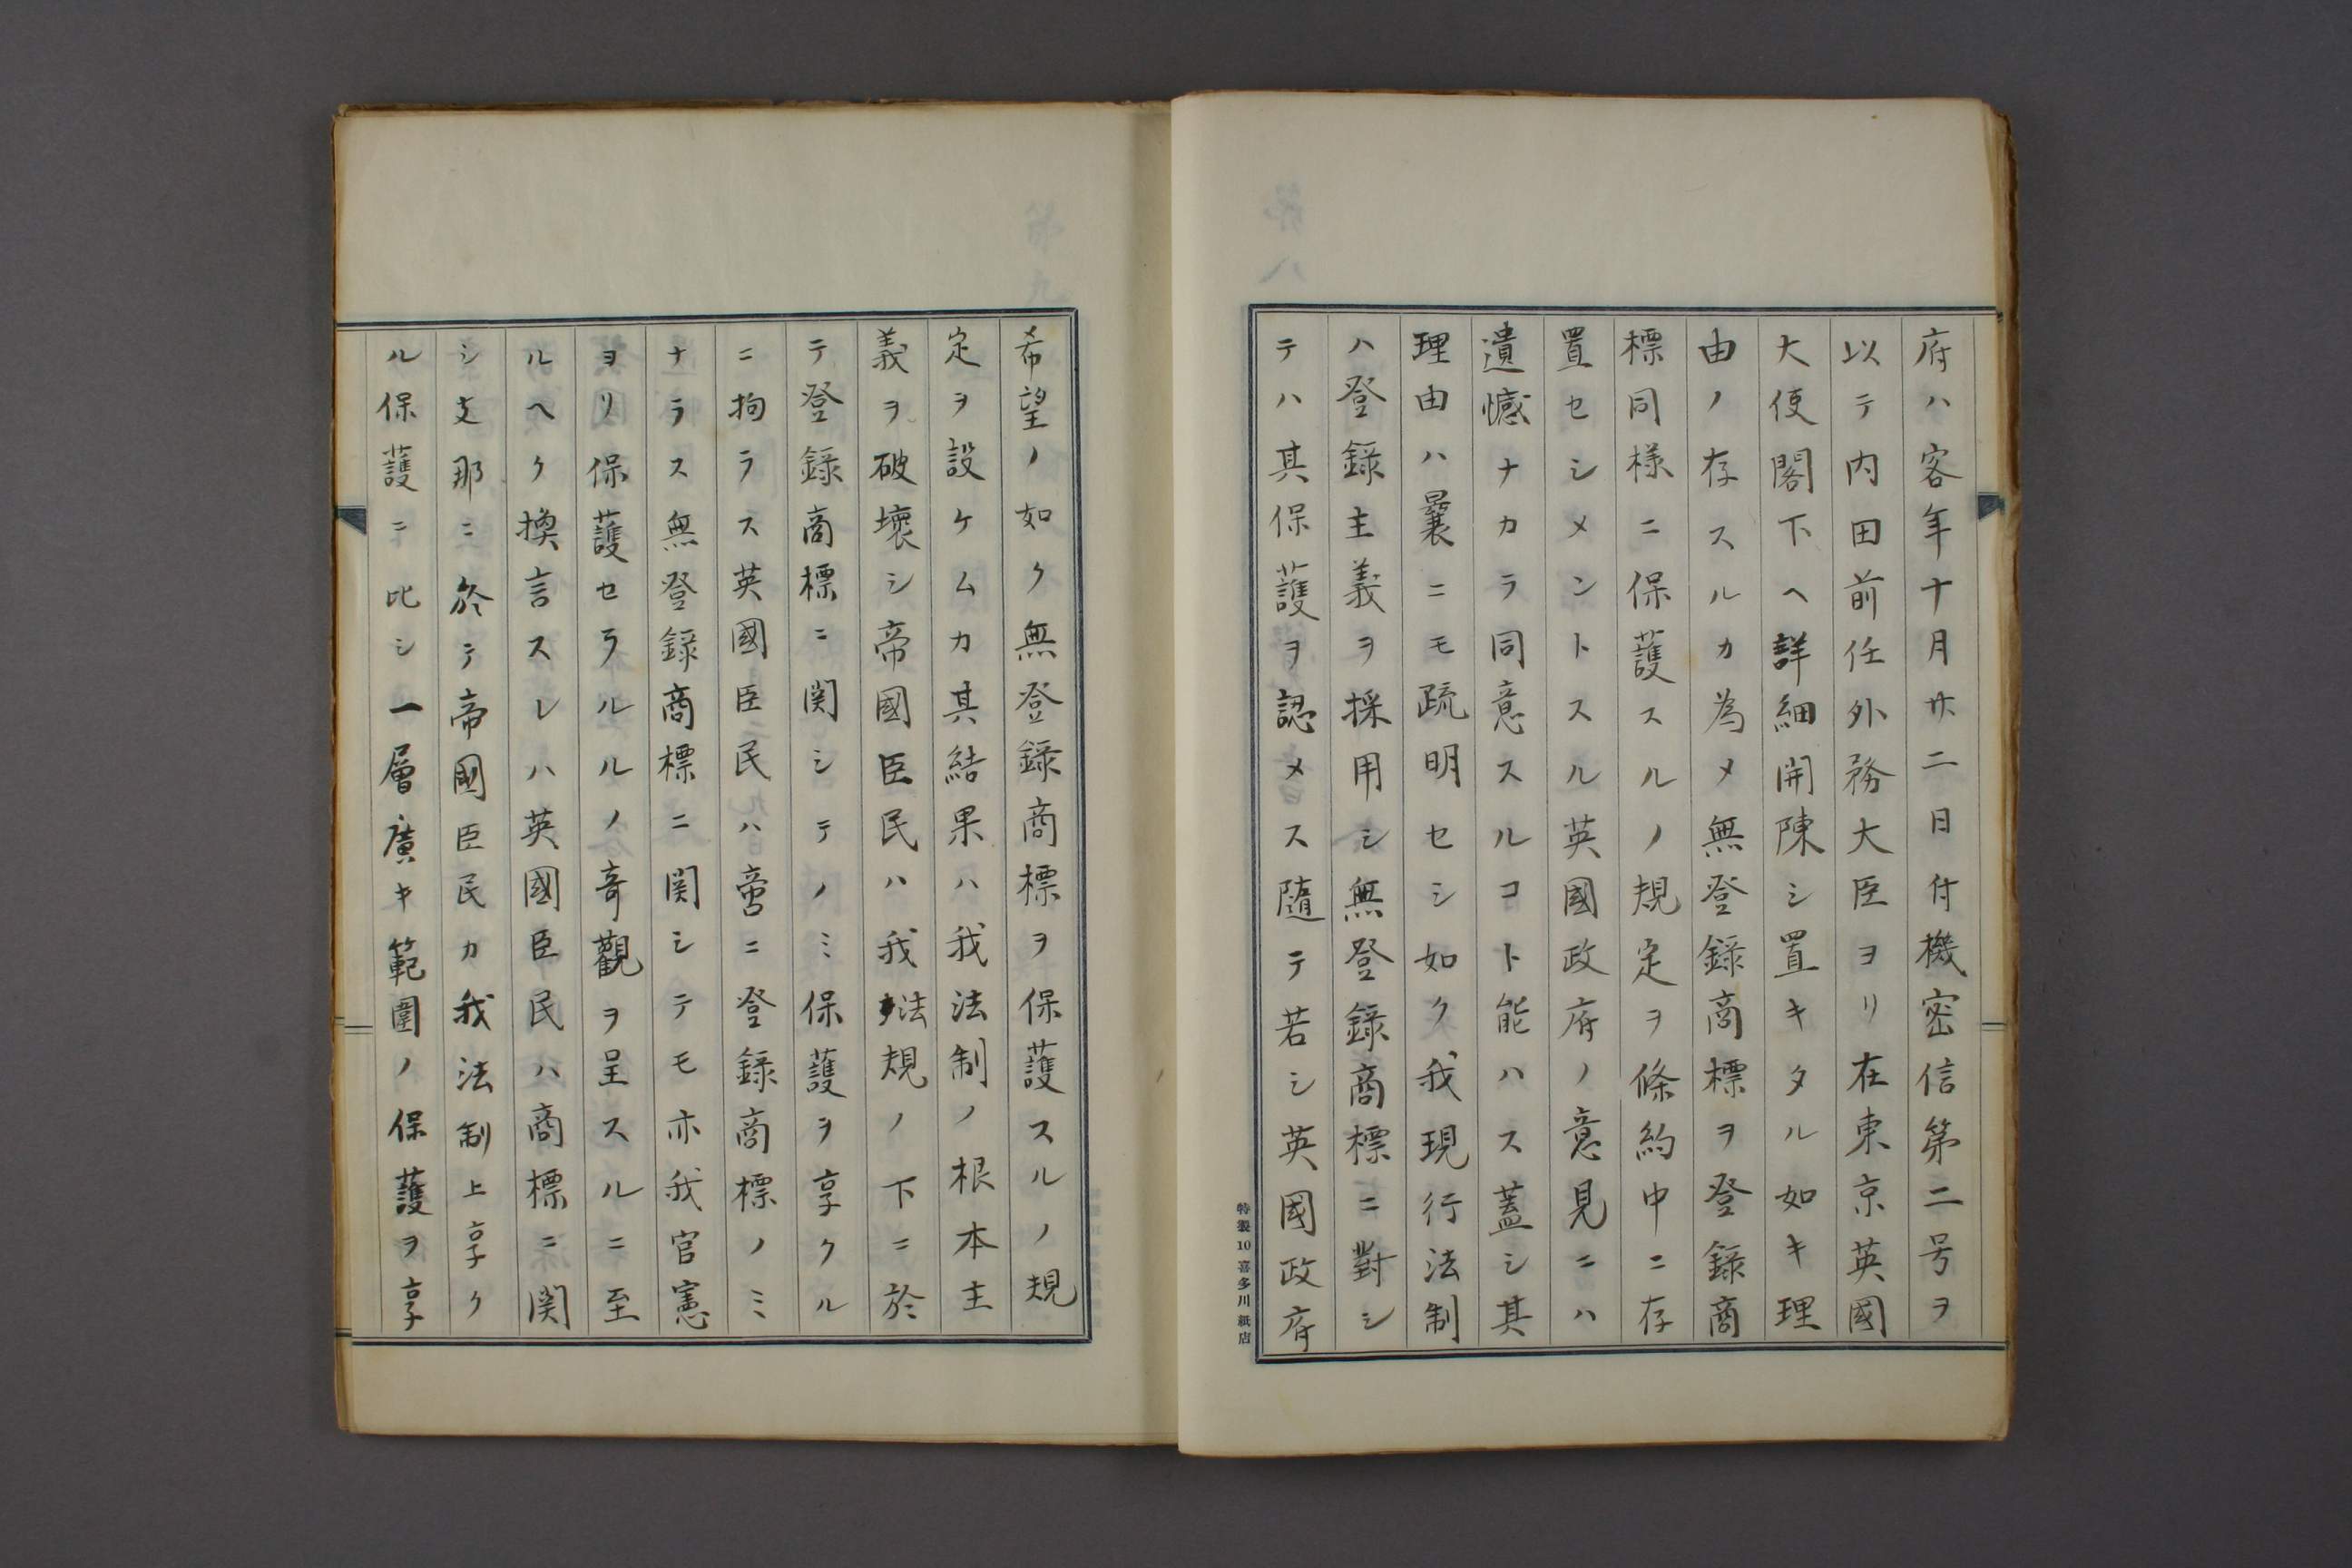 府ハ客年十月廿二日付機密信第二号ヲ
以テ内田前任外務大臣ヨリ在東京英國
大使閣下ヘ詳細開陳シ置キタル如キ理
由ノ存スルカ為メ無登録商標ヲ登録商
標同様ニ保護スルノ規定ヲ條約中ニ存
置セシメントスル英國政府ノ意見ニハ
遺憾ナカラ同意スルコト能ハス蓋シ其
理由ハ曩ニモ疏明セシ如ク我現行法制
ハ登録主義ヲ採用シ無登録商標ニ對シ
テハ其保護ヲ認メス隨テ若シ英國政府
特製10喜多川紙店
希望ノ如ク無登録商標ヲ保護スルノ規
定ヲ設ケムカ其結果ハ我法制ノ根本主
義ヲ破壊シ帝國臣民ハ我法規ノ下ニ於
テ登録商標ニ関シテノミ保護ヲ享クル
ニ拘ラス英國臣民ハ啻ニ登録商標ノミ
ナラス無登録商標ニ関シテモ亦我官憲
ヨリ保護セラルルノ奇觀ヲ呈スルニ至
ルヘク換言スレハ英國臣民ハ商標ニ関
シ支那ニ於テ帝國臣民カ我法制上享ク
ル保護ニ比シ一層廣キ範圍ノ保護ヲ享